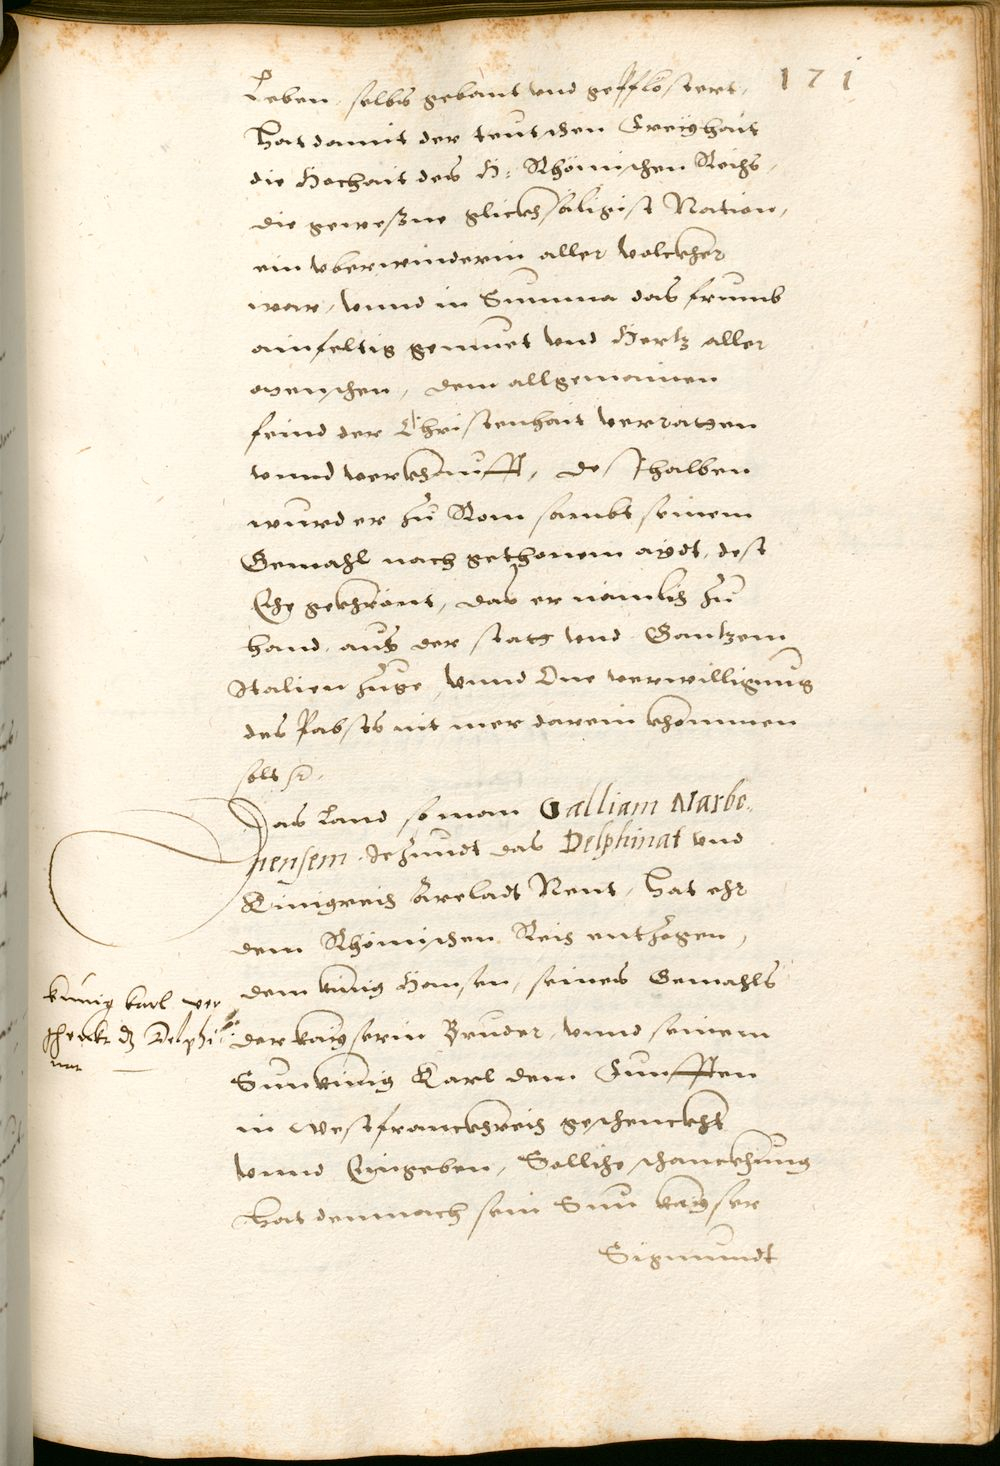 171
Leben, selbs gebaut vnd gepflostert,
Hat damit der teutschen Freÿhait
die Hochait des H: Rhömischen Reichs,
die geweßne glickhsäligist Nation,
ein vberwinderin aller volckher
war, vnnd in Summa das frumb
ainfeltig gemuet vnd Hertz aller
menschen, dem allgemainen
feind der Christenhait verraten
vnnd verkhaufft, desthalben
wurd er zu Rom sambt seinem
Gemahl nach gethonem aydt, dest
Ehe gekhrönt, das er nämlich zu
hand, aus der statt vnd Gantzem
Italien zuge, vnnd One verwilligung
des Pabsts nit mer darein khommen
solt ꝛc.
Das Land so man Galliam Narbo
nensem, Jezundt das Delphinat vnd
Kinigreich Areladt Nent, hat ehr
dem Rhömischen Reich entzogen,
dem kinig Hansen, seines Gemahls
der kayserin Brueder, vnnd seinem
Sun kinig Karl dem Funfften
in Westfranckhreich geschenckht
vnnd Eingeben, Solliche schanckhung
Hat demnach sein Sun kayser
Sigmundt
kunig karl ver
schenkt dz Delphi
nat